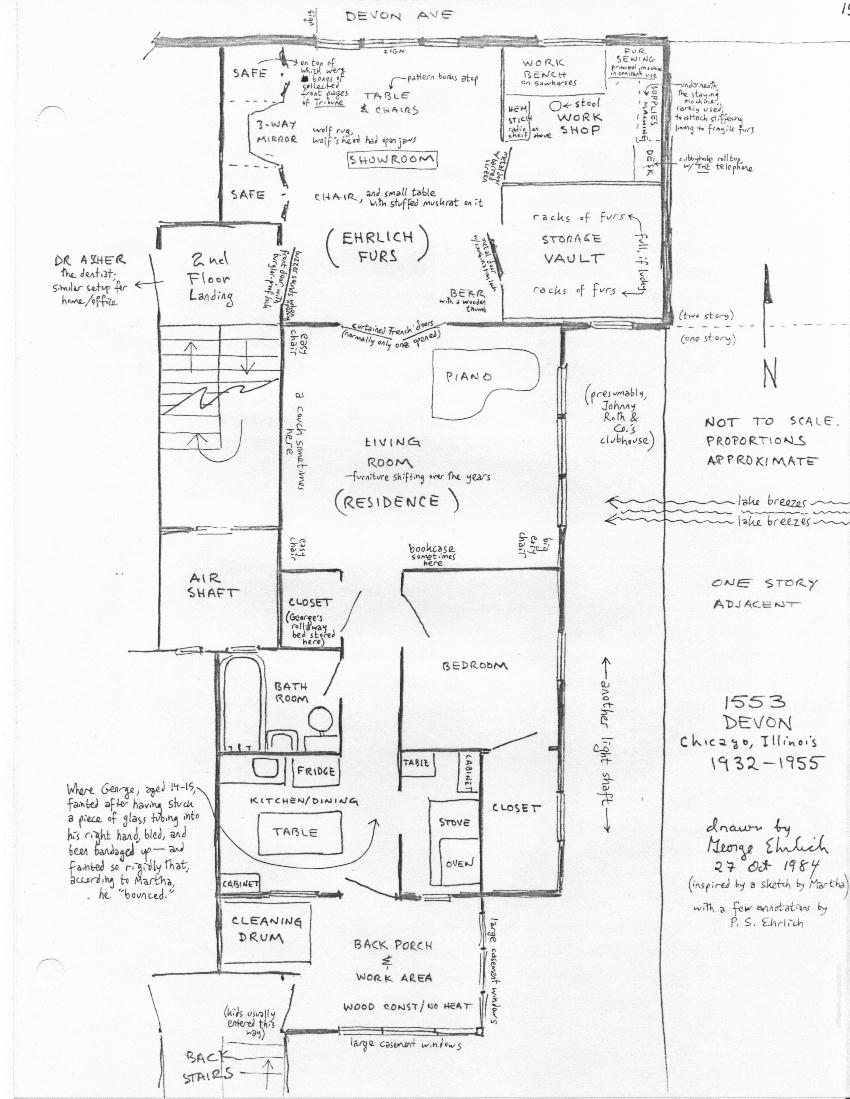 DEVON AVE
sign
SIGN
SAFE
on top of
which were
boxes of
collected
front pages
of Tribune
pattern books atop
TABLE
& CHAIRS
WORK
BENCH
on sawhorses
FUR
SEWING
principal machine
in constant use
SUPPLIES
underneath,
the staying
machine,
rarely used,
to attach stiffening
lining to fragile furs
HEM
STICH
radio on
shelf above
stool
WORK
SHOP
3-WAY
MIRROR
wolf rug,
wolf's head had open jaws
SHOWROOM
DESK
cubbyhole rolltop,
w/THE telephone
SAFE
CHAIR, and small table
with stuffed muskrat on it
(EHRLICH
FURS)
racks of furs
STORAGE
VAULT
racks of furs
full, if lucky
BEAR
with a wooden
thumb
DR ASHER
the dentist;
similar setup for
home/office
2nd
Floor
Landing
curtained French doors
(normally only one opened)
(two story)
(one story)
N
easy
chair
PIANO
a couch sometimes
here
LIVING
ROOM
furniture shifting over the years
(RESIDENCE)
(presumably,
Johnny
Roth &
Co.'s
clubhouse)
NOT TO SCALE.
PROPORTIONS
APPROXIMATE
lake breezes
lake breezes
easy
chair
bookcase
sometimes
here
big
easy
chair
AIR
SHAFT
CLOSET
(George's
rollaway
bed stored
here)
ONE STORY
ADJACENT
BATH
ROOM
BEDROOM
another light shaft
1553
DEVON
Chicago, Illinois
1932-1955
FRIDGE
TABLE
CABINET
KITCHEN/DINING
TABLE
CABINET
STOVE
OVEN
CLOSET
Where George, aged 14-15,
fainted after having stuck
a piece of glass tubing into
his right hand, bled, and
been bandaged up — and
fainted so rigidly that,
according to Martha,
he "bounced."
drawn by
George Ehrlich
27 Oct 1984
(inspired by a sketch by Martha)
with a few annotations by
P. S. Ehrlich
CLEANING
DRUM
BACK PORCH
&
WORK AREA
WOOD CONST/NO HEAT
large casement windows
large casement windows
(kids usually
entered this
way)
BACK
STAIRS